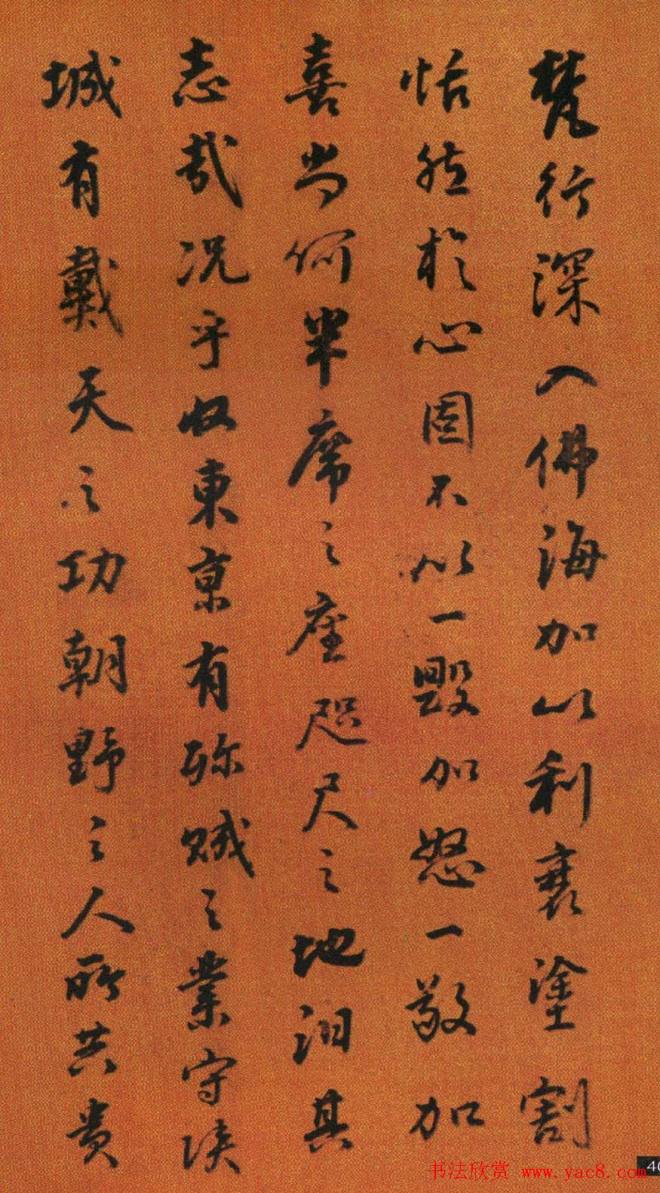 梵行深入佛海加以利衰塗割
恬然於心固不以一毀加怒一敬加
喜尚何半席之座咫尺之地汨其
志哉况乎收東京有殄賊之業守陜
城有戴天之功朝野之人所共貴
書法欣赏 www.yac8.com
40